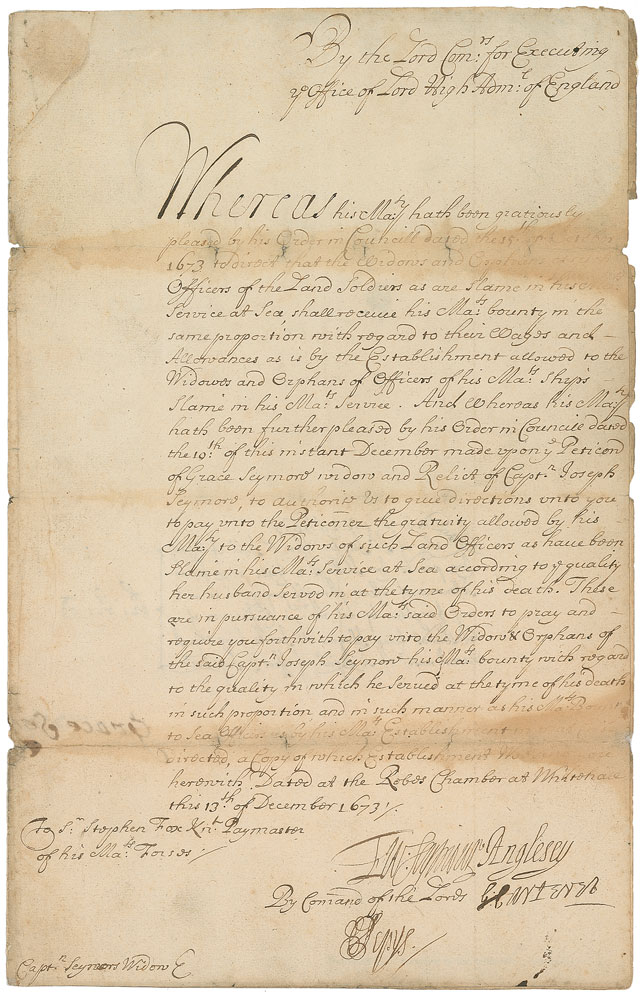 By the Lord Com:rs for Executing
ye Office of Lord High Adm:ll of England
Whereas his Ma:ty hath been gratiously
pleased by his Order in Councill dated the
1673 to Direct that the Widows and Orphans
Officers of the Land Soldiers as are Slaine in his
Service at Sea, shall receive his Ma:ts bounty in the
same proportion with regard to their Wages and –
Allowances as is by the Establishment allowed to the
Widowes and Orphans of Officers of his Ma:ts Ships –
Slaine in his Ma:ts Service. And Whereas his Ma:ty
hath been further pleased by his Order in Councill dated
the 10:th of this instant December made upon ye Peticon
of Grace Seymour widow and Relict of Capt:n Joseph
Seymour, to authorise Us to give directions unto you
to pay unto the Peticoner the gratuity allowed by his
Ma:ty to the Widows of such Land Officers as have been
Slaine in his Ma:ts Service at Sea according to ye quality
her husband Served in at the tyme of his death. These
are in pursuance of his Ma:ts said Orders to pray and –
require you forthwith to pay unto the Widow & Orphans of
the said Capt:n Joseph Seymour his Ma:ts bounty with regard
to the quality in which he Served at the tyme of his death
in such proportion and in such manner as his Ma:ts
to Sea by his Ma:ts Establishment
Directed, a Copy of which Establishment
herewith. Dated at the Robes Chamber at Whitehall
this 13:th of December 1673 /.
To S:r Stephen Fox Kn:t Paymaster
of his Ma:ts Forses /
Seymour Anglesey
By Comand of the Lords
SPepys /
Capt:n Seymors Widow
Grace